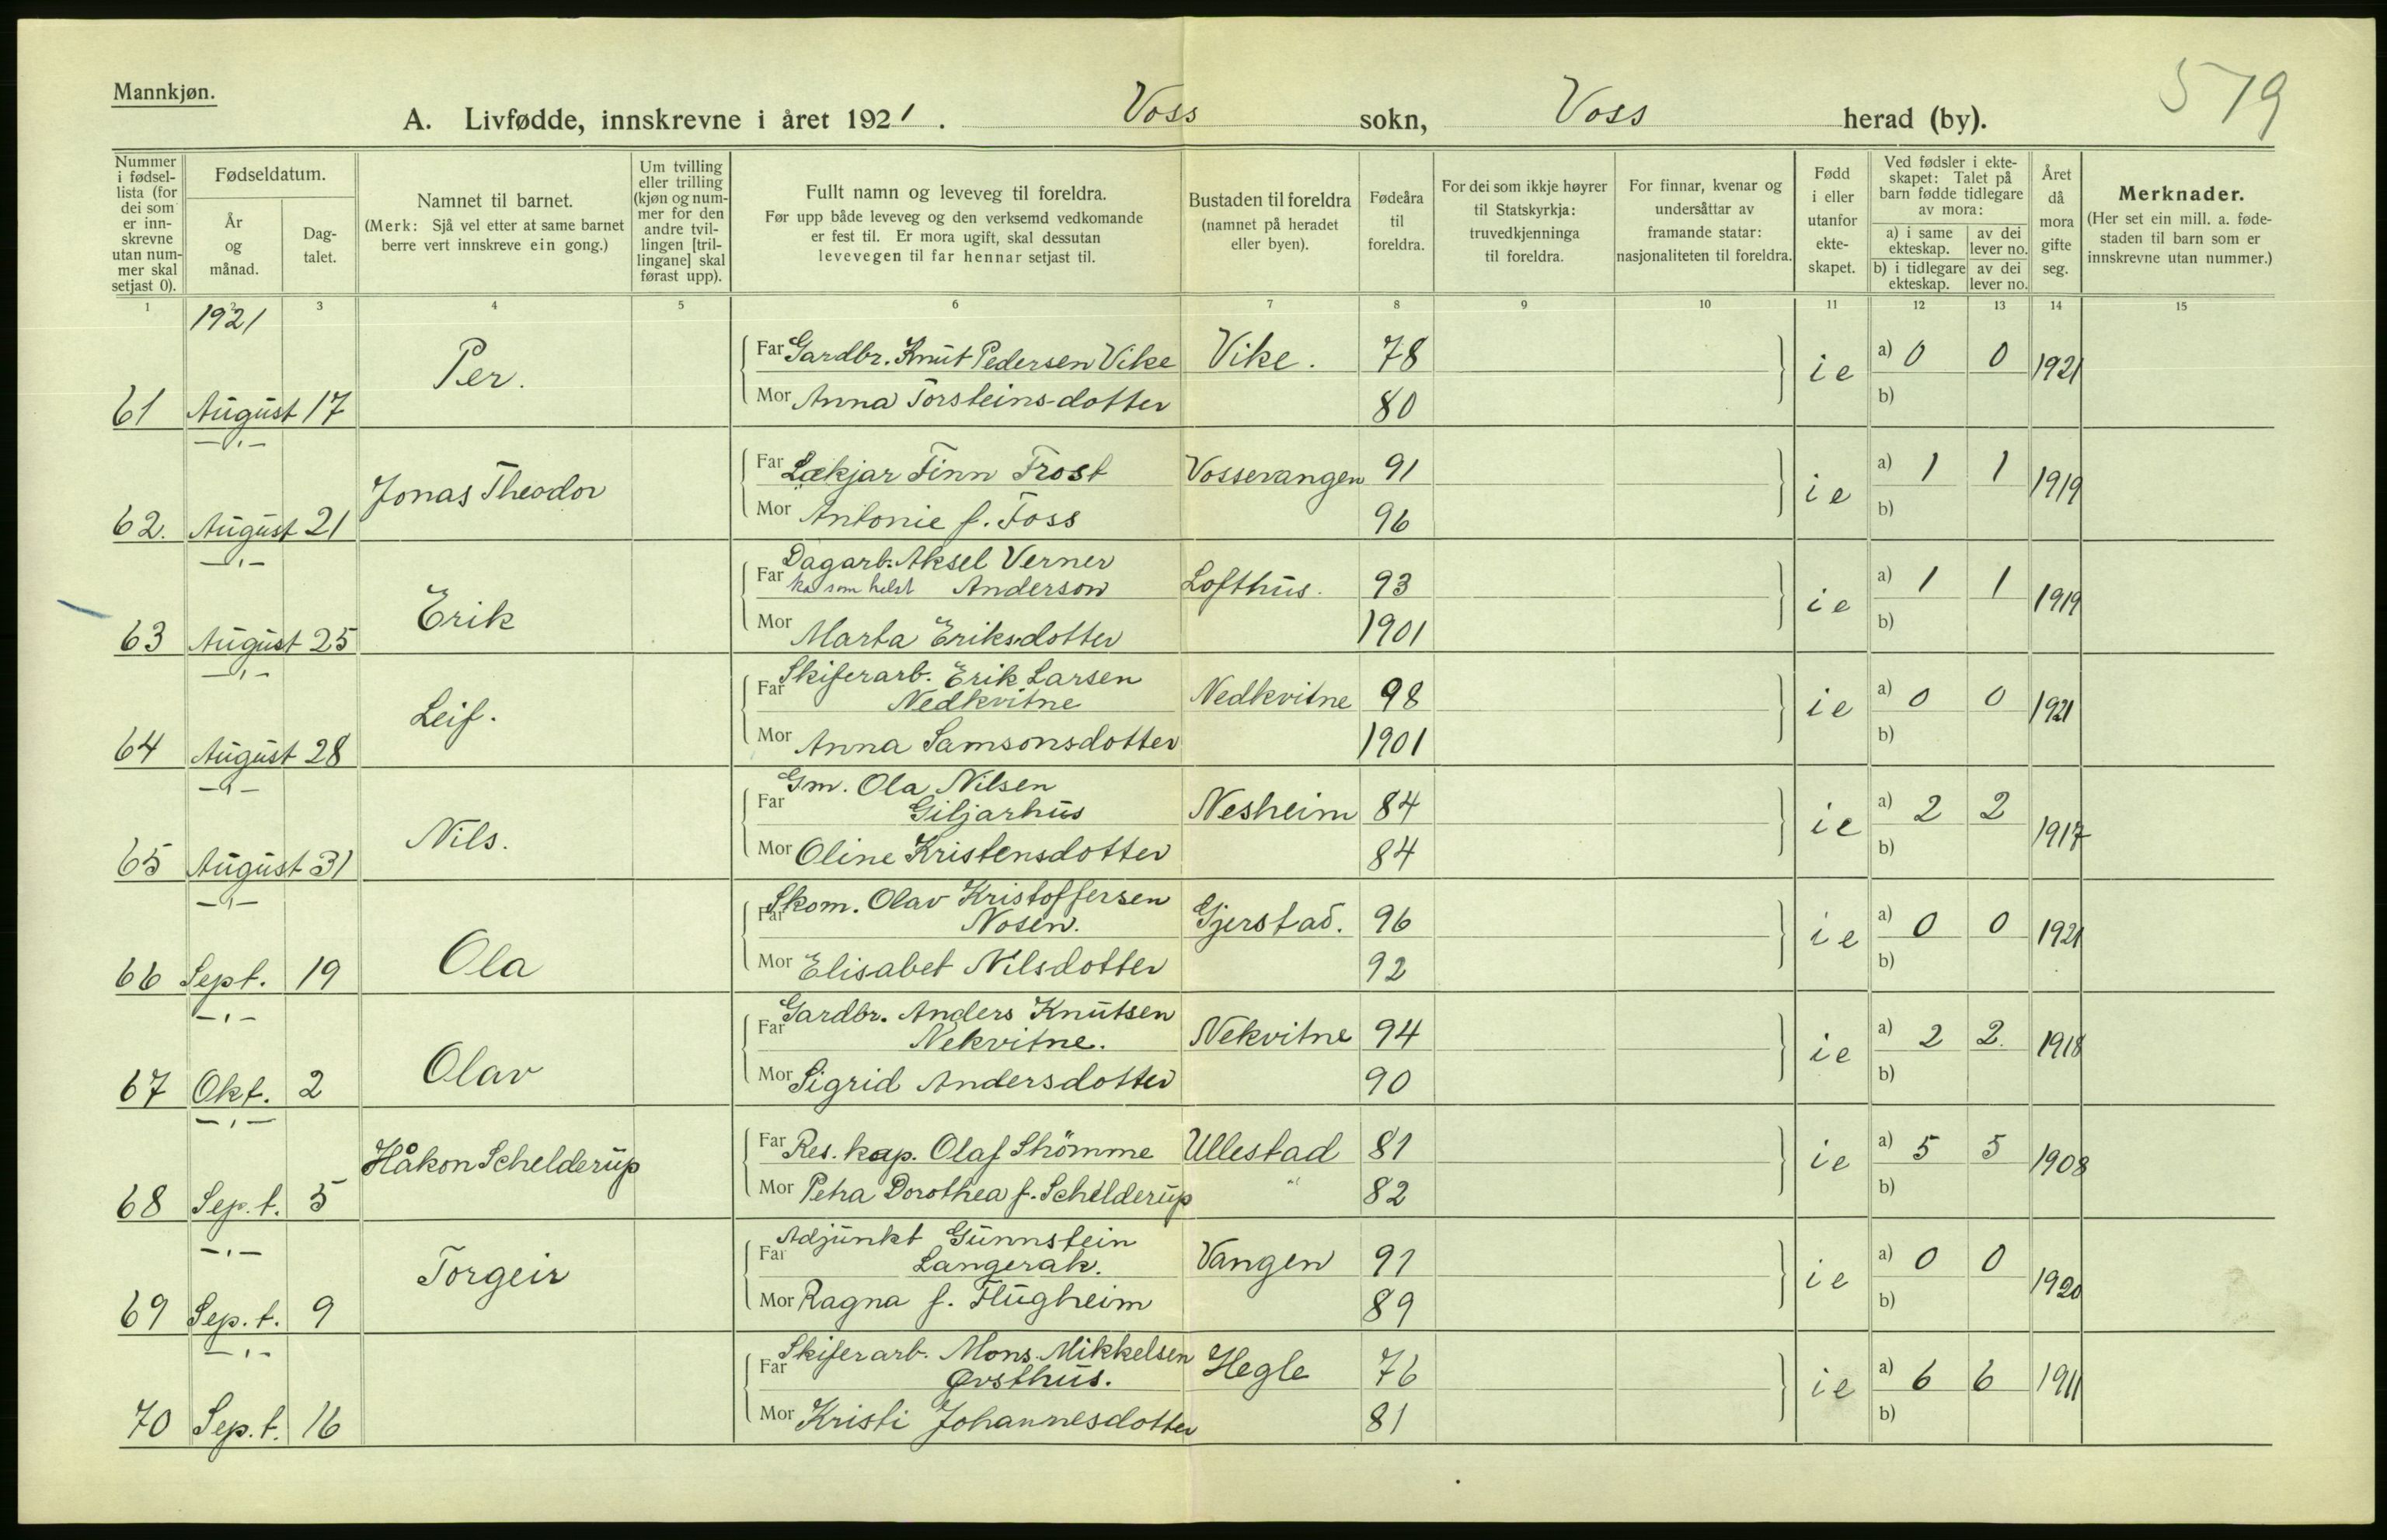 Mannkjøn.
579
A. Livfødde, innskrevne i året 1921. Voss sokn, Voss herad (by).
Nummer i fødsel-lista (for dei som er inn-skrevne utan num-mer skal setjast 0).
Fødseldatum.
År og månad.
Dag-talet.
Namnet til barnet.
(Merk: Sjå vel etter at same barnet berre vert innskreve ein gong.)
Um tvilling eller trilling (kjøn og num-mer for den andre tvil-lingen [tril-lingane] skal førast upp).
Fullt namn og leveveg til foreldra.
Før upp både leveveg og den verksemd vedkomande er fest til. Er mora ugift, skal dessutan levevegen til far hennar setjast til.
Bustaden til foreldra (namnet på heradet eller byen).
Fødeåra til foreldra.
For dei som ikkje høyrer til Statskyrkja: truvedkjenninga til foreldra.
For finnar, kvenar og undersåttar av framande statar: nasjonaliteten til foreldra.
Født i eller utanfor ekte-skapet.
Ved fødsler i ekte-skapet: Talet på barn fødde tidlegare av mora:
a) i same ekteskap. av dei lever no.
b) i tidlegare ekteskap. av dei lever no.
Året då mora gifte seg.
Merknader.
(Her set ein mill. a. føde-staden til barn som er innskrevne utan nummer.)
1 2 3 4 5 6 7 8 9 10 11 12 13 14 15
1921
Per.
Far Gardbr. Knut Pedersen Vike Vike. 78 ie a) 0 0 1921
61 August 17 Mor Anna Torsteinsdotter 80 b)
—"—
Jonas Theodor
Far Lækjar Finn Frost Vossevangen 91 ie a) 1 1 1919
62. August 21 Mor Antonie f. Foss 96 b)
—"—
Erik
Dagarb. Aksel Verner
Far ka som helst Anderson Lofthus. 93 ie a) 1 1 1919
63 August 25 Mor Marta Eriksdotter 1901 b)
—"—
Leif.
Skiferarb. Erik Larsen
Far Nedkvitne Nedkvitne 98 ie a) 0 0 1921
64 August 28 Mor Anna Samsonsdotter 1901 b)
—"—
Nils.
Gm. Ola Nilsen
Far Giljarhus Nesheim 84 ie a) 2 2 1917
65 August 31 Mor Oline Kristensdotter 84 b)
—"—
Ola
Skom. Olav Kristoffersen
Far Nosen. Gjerstad. 96 ie a) 0 0 1921
66 Sept. 19 Mor Elisabet Nilsdotter 92 b)
—"—
Olav
Gardbr. Anders Knutsen
Far Nekvitne. Nekvitne 94 ie a) 2 2. 1918
67 Okt. 2 Mor Sigrid Andersdotter 90 b)
—"—
Håkon Schelderup
Far Res. kap. Olaf Strömme Ullestad 81 ie a) 5 5 1908
68 Sep.t. 5 Mor Petra Dorothea f. Schelderup " 82 b)
—"—
Torgeir
Adjunkt Gunnstein
Far Langerak. Vangen 91 ie a) 0 0 1920
69 Sep.t. 9 Mor Ragna f. Flugheim 89 b)
—"—
Skiferarb. Mons Mikkelsen
Far Ørsthus. Hegle 76 ie a) 6 6 1911
70 Sep.t. 16 Mor Kristi Johannesdotter 81 b)